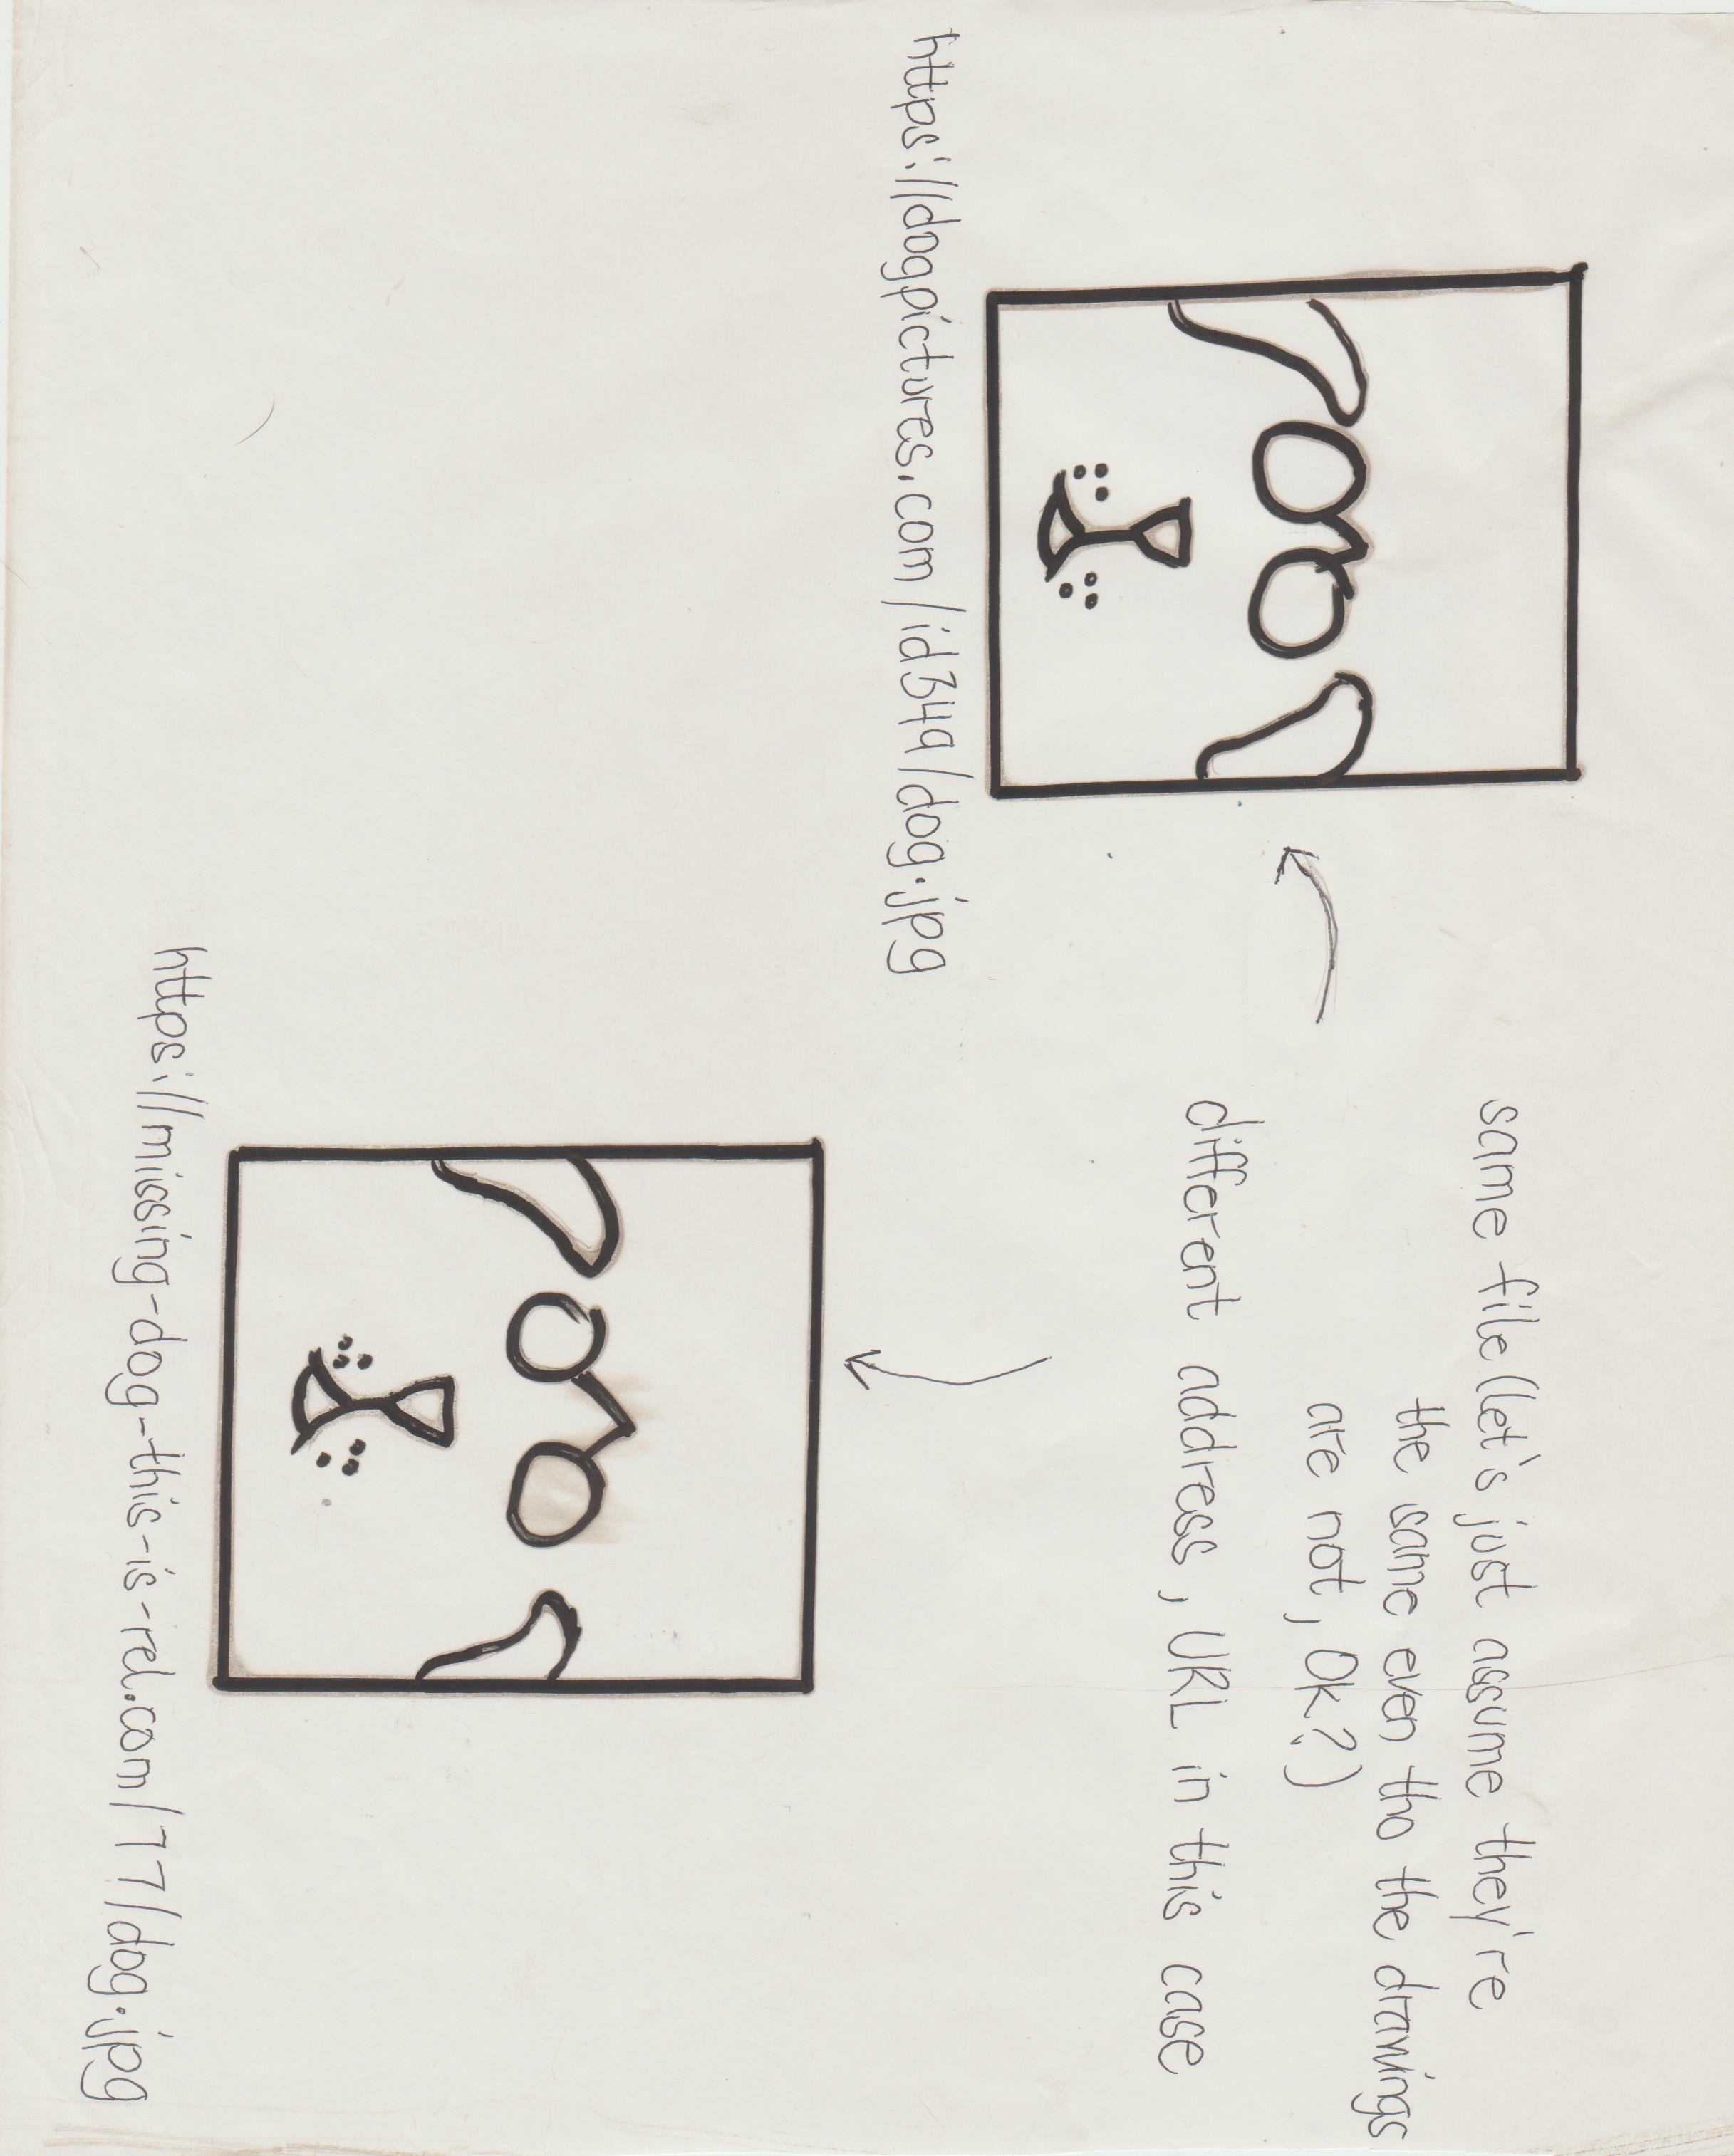 same file (let's just assume they're
the same even tho the drawings
are not, Ok?)
different address, URL in this case
https://dogpictures.com/id349/dog.jpg
https://missing-dog-this-is-rel.com/77/dog.jpg